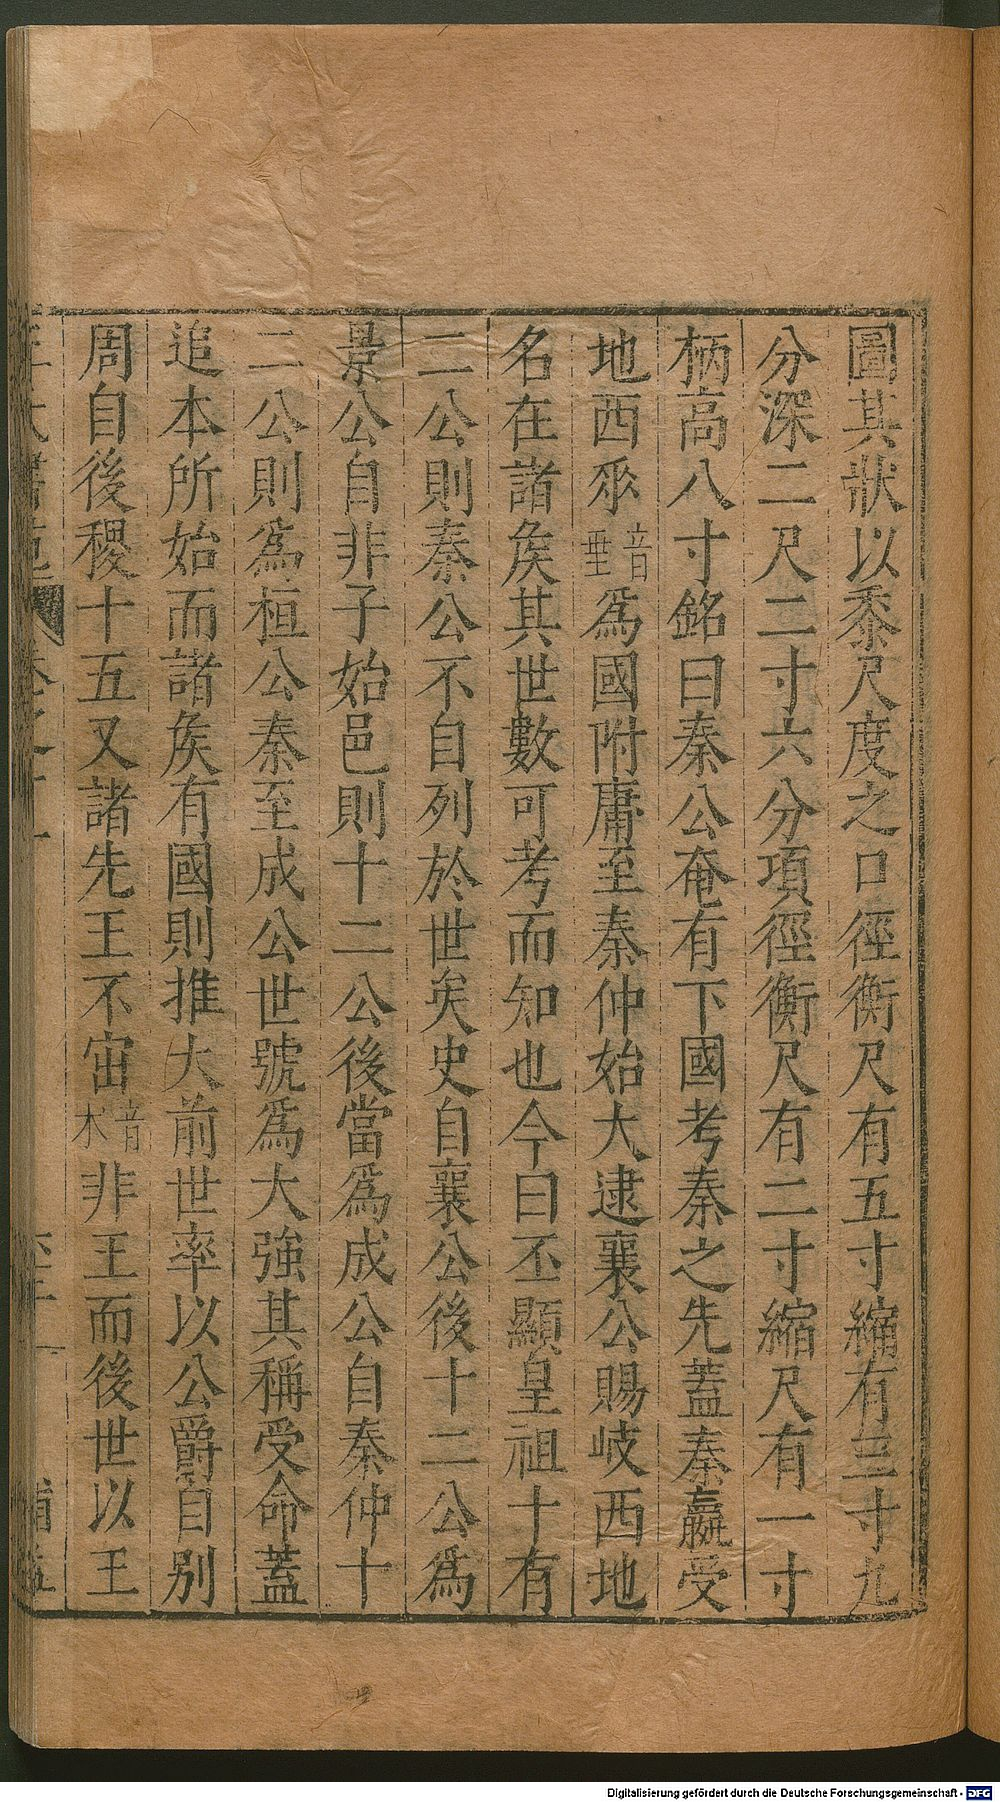 圖其狀以黍尺度之口徑衡尺有五寸縮有三寸九
分深二尺二寸六分項徑衡尺有二寸縮尺有一寸
柄高八寸銘曰秦公奄有下國考秦之先蓋秦嬴受
地西𠂹音垂爲國附庸至秦仲始大逮襄公賜岐西地
名在諸矦其世數可考而知也今曰丕顯皇祖十有
二公則秦公不自列於世矣史自襄公後十二公爲
景公自非子始邑則十二公後當爲成公自秦仲十
二公則爲桓公秦至成公世號爲大強其稱受命蓋
追本所始而諸矦有國則推大前世率以公爵自別
周自後稷十五又諸先王不窋音朩非王而後世以王
Digitalisierung gefördert durch die Deutsche Forschungsgemeinschaft - DFG